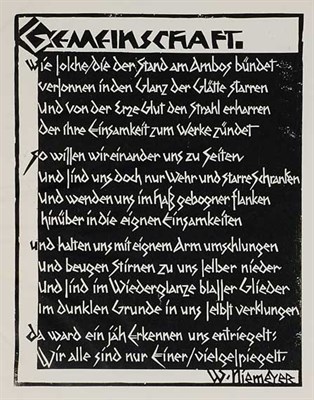 GEMEINSCHAFT.
Wie solche/die der Stand am Ambos bündet
versonnen in den Glanz der Glätte starren
und von der Erze Glut den Strahl erharren
der ihre Einsamkeit zum Werke zündet
so wissen wir einander uns zu Seiten
und sind uns doch nur Wehr und starre Schranken
und wenden uns im Haß gebogner Flanken
hinüber in die eignen Einsamkeiten
und halten uns mit eignem Arm umschlungen
und beugen Stirnen zu uns selber nieder
und sind im Wiederglanze blasser Glieder
im dunklen Grunde in uns selbst verklungen
da ward ein jäh Erkennen uns entriegelt:
Wir alle sind nur Einer/vielgespiegelt.
W. Niemeyer